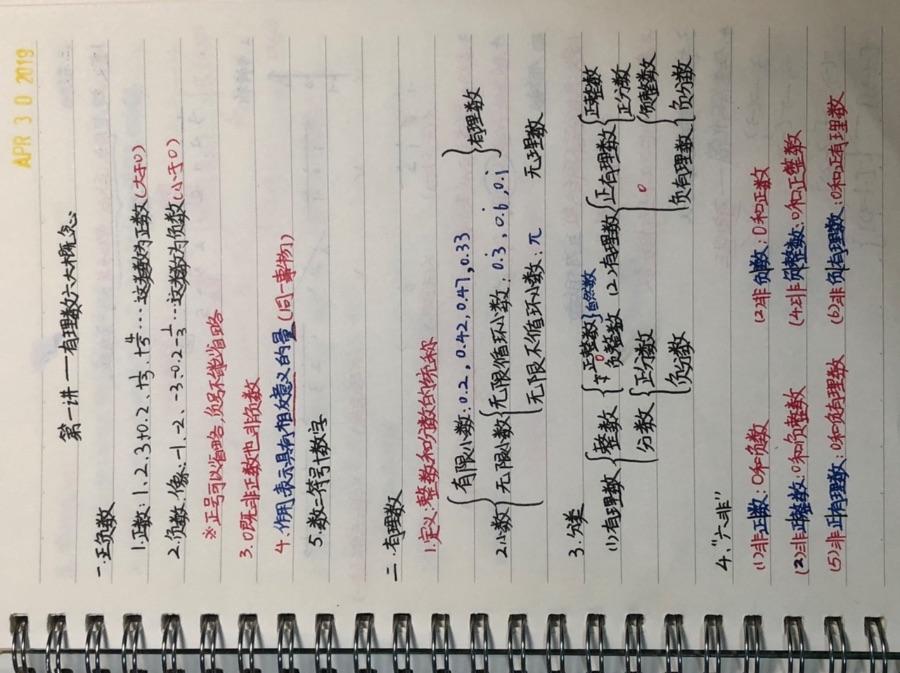 APR 30 2019
第一讲——有理数六大概念
一.正负数
1.正数:1、2、3、+0.2、+1/3、+4/5…这类数为正数(大于0)
2.负数:像-1、-2、-3、-0.2、-1/3…这类数为负数(小于0)
※正号可以省略,负号不能省略
3.0既非正数也非负数
4.作用:表示具有相反意义的量(同一事物)
5.数=符号+数字
二.有理数
1.定义:整数和分数的统称
2.小数{有限小数:0.2,0.42,0.47,0.33
无限小数{无限循环小数:0.3̇,0.6̇,0.1̇}有理数
无限不循环小数:π 无理数
3.分类
(1)有理数{整数{正整数}自然数
0
负整数
分数{正分数
负分数
(2)有理数{正有理数{正整数
正分数
0
负有理数{负整数
负分数
4."六非"
(1)非正数:0和负数 (2)非负数:0和正数
(3)非正整数:0和负整数 (4)非负整数:0和正整数
(5)非正有理数:0和负有理数 (6)非负有理数:0和正有理数